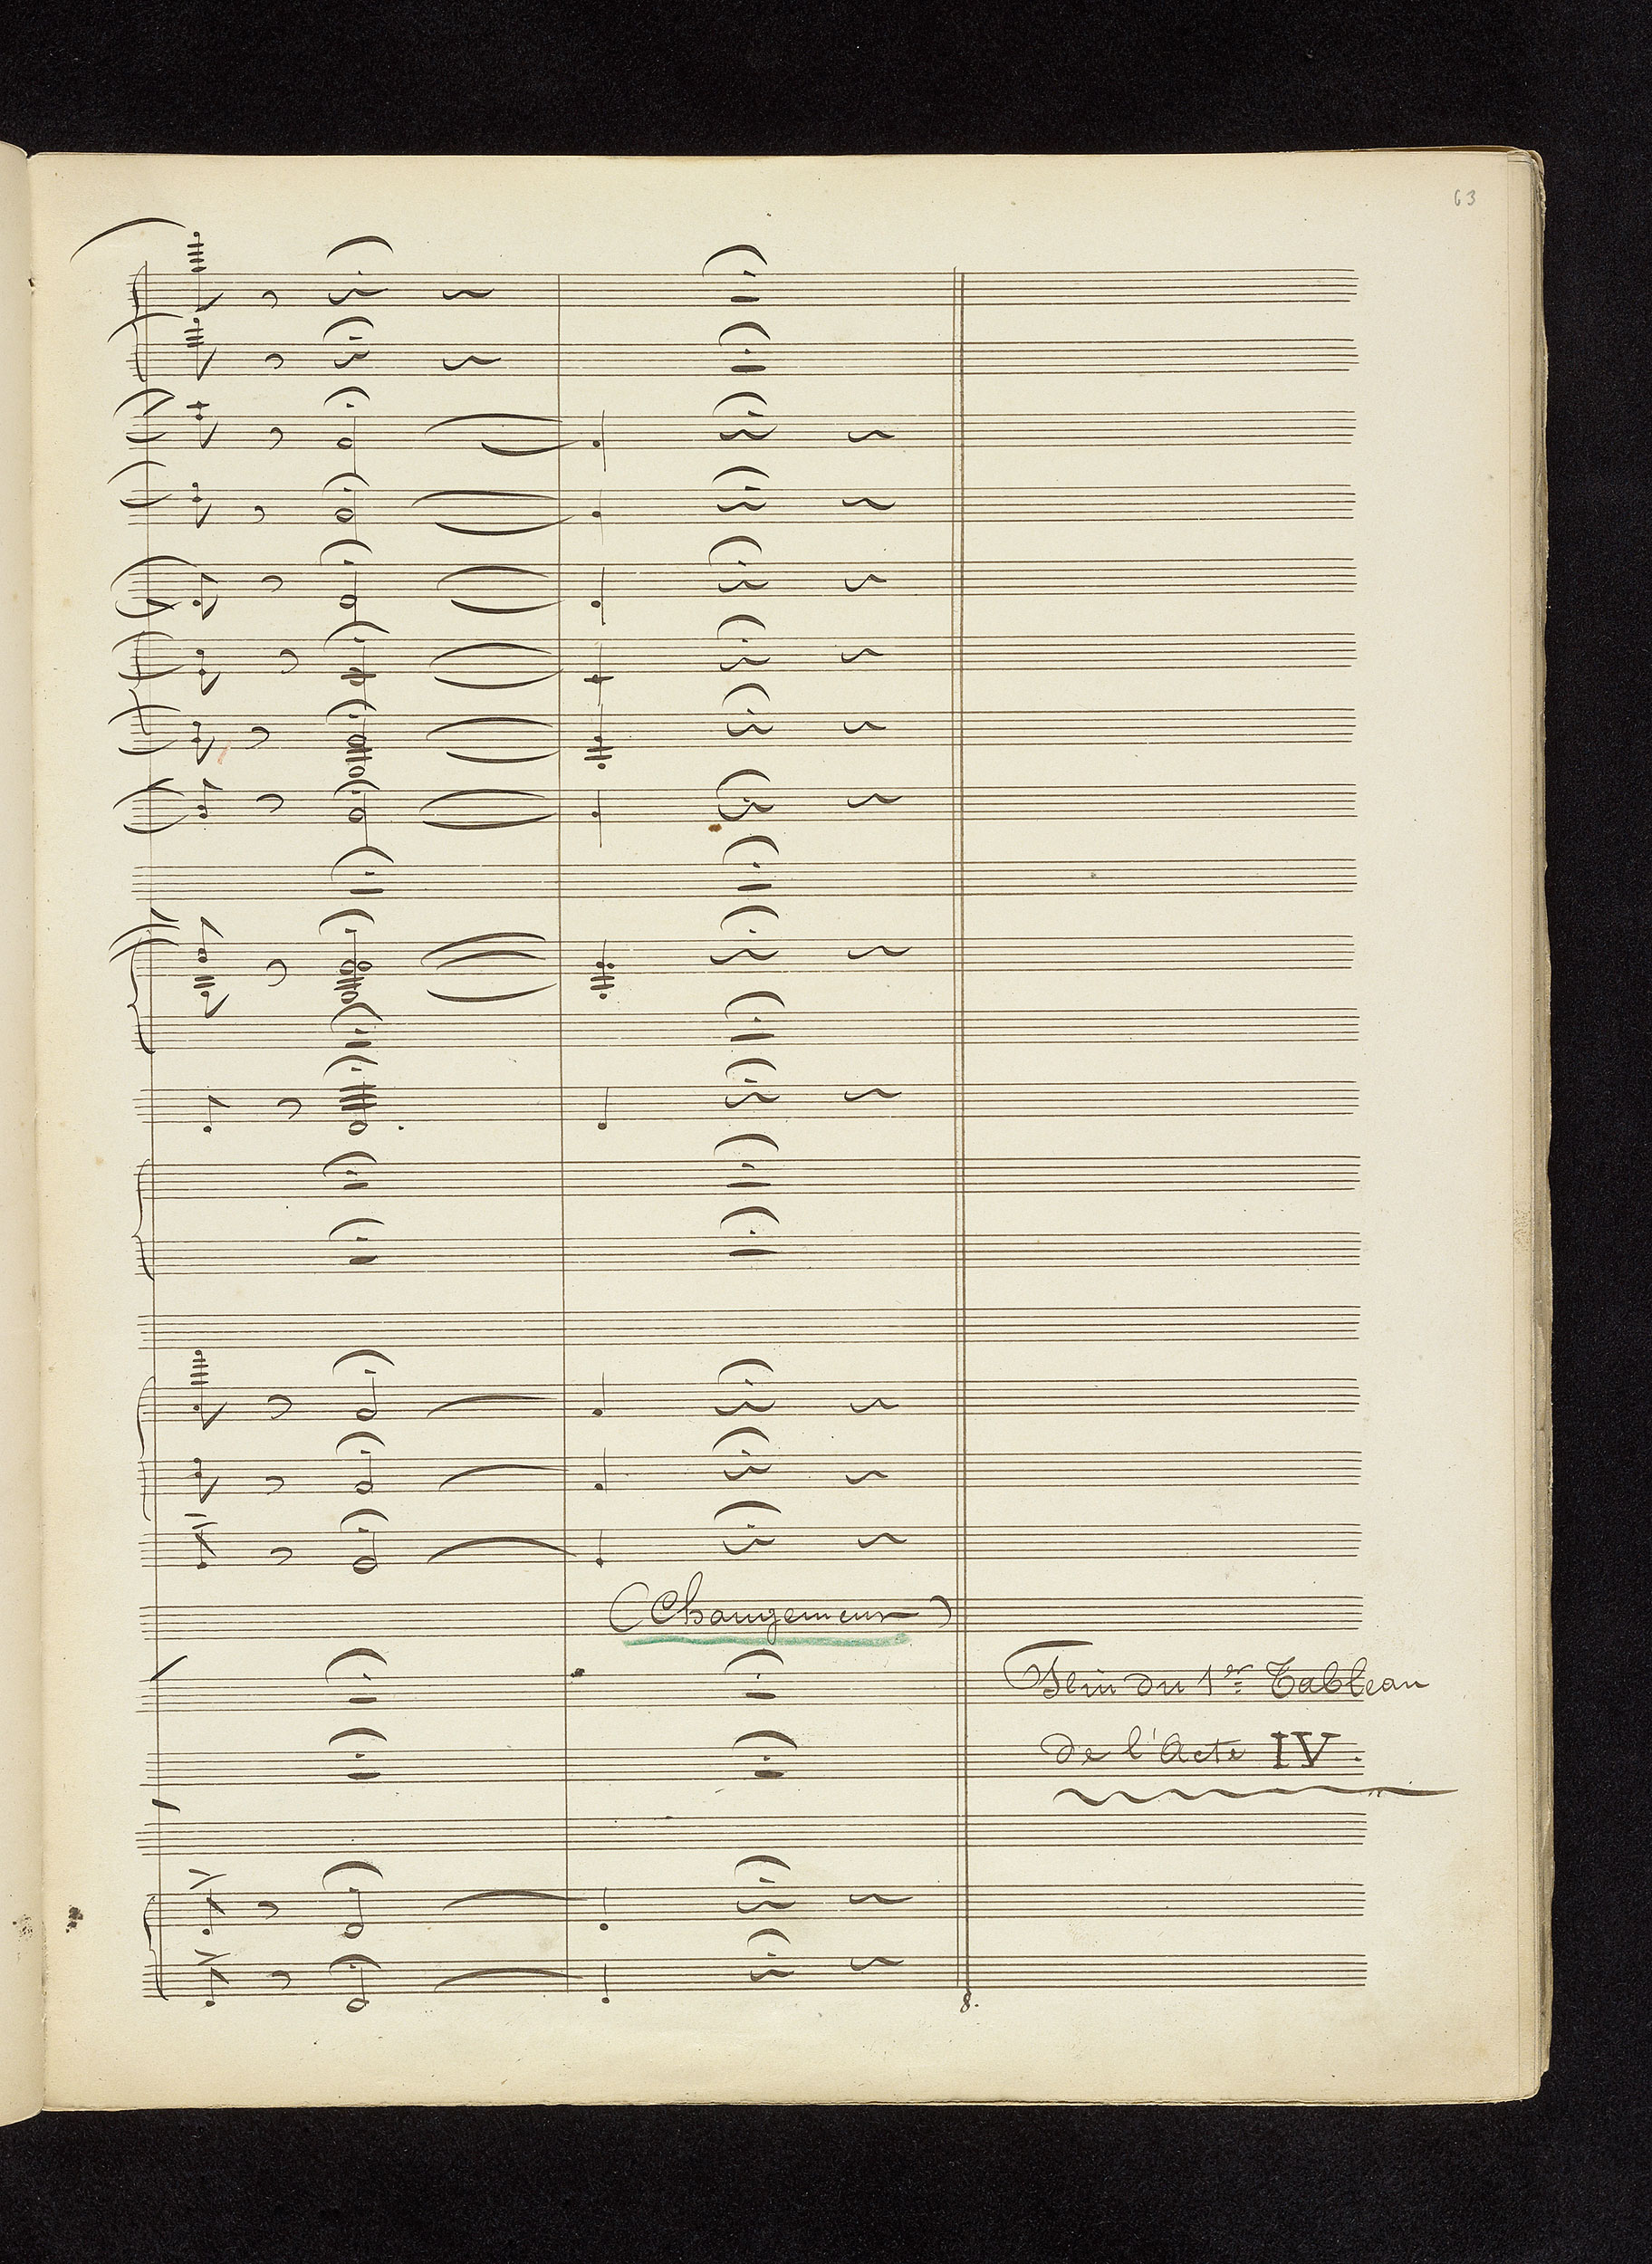 63
(Changement)
Fin du 1er Tableau
de l'Acte IV.
8.